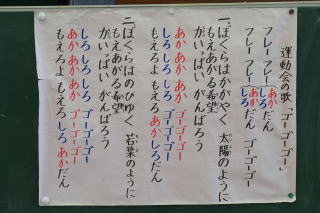 運動会の歌「ゴーゴーゴー」
フレーフレー あかだん
フレーフレー しろだん ゴーゴーゴー
一、ぼくらはかがやく 太陽のように
もえあがる希望
がいっぱい がんばろう
あか あか あか ゴーゴーゴー
しろ しろ しろ ゴーゴーゴー
あか あか あか ゴーゴーゴー
もえろよ もえろ あかしろだん
二、ぼくらはのびゆく 若葉のように
もえあがる希望
がいっぱい がんばろう
しろ しろ しろ ゴーゴーゴー
あか あか あか ゴーゴーゴー
しろ しろ しろ ゴーゴーゴー
もえろよ もえろ しろ あかだん